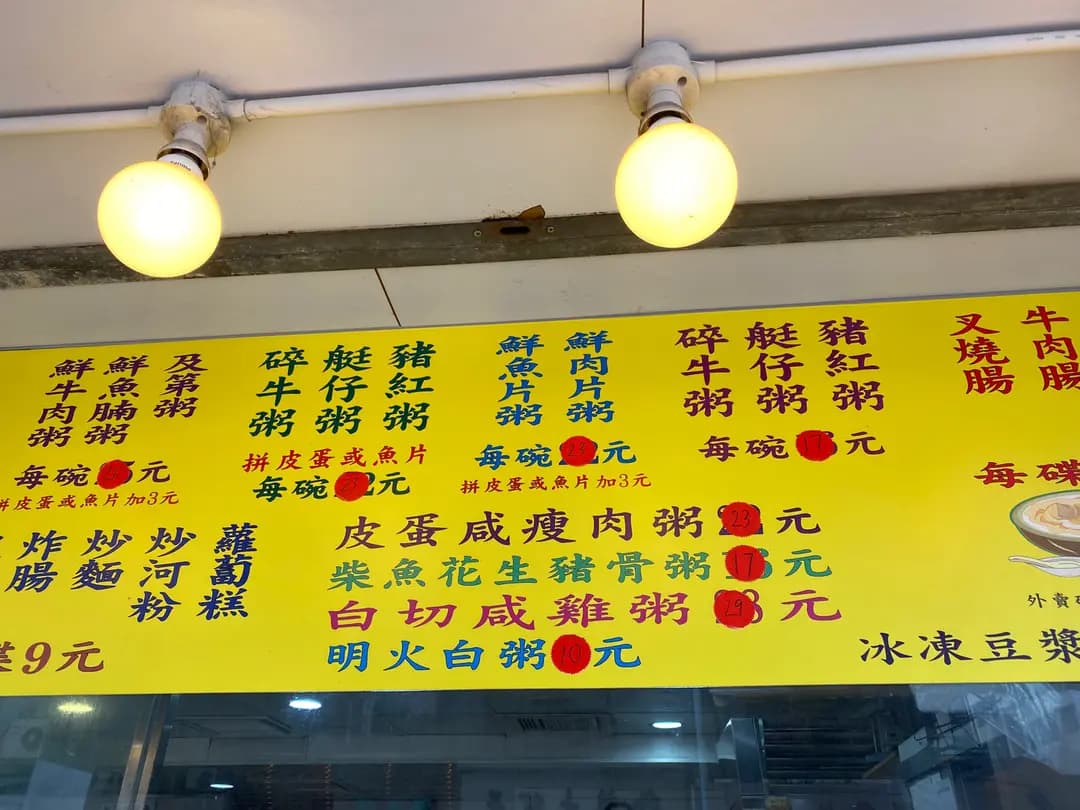 及第粥
鮮魚腩粥
鮮牛肉粥
每碗 元
拼皮蛋或魚片加3元
豬紅粥
艇仔粥
碎牛粥
拼皮蛋或魚片
每碗23元
鮮肉片粥
鮮魚片粥
每碗23元
拼皮蛋或魚片加3元
豬紅粥
艇仔粥
碎牛粥
每碗17元
牛肉腸
叉燒腸
每碟
蘿蔔糕
炒河粉
炒麵
炸腸
9元
皮蛋咸瘦肉粥23元
柴魚花生豬骨粥17元
白切咸雞粥29元
明火白粥10元
外賣
冰凍豆漿